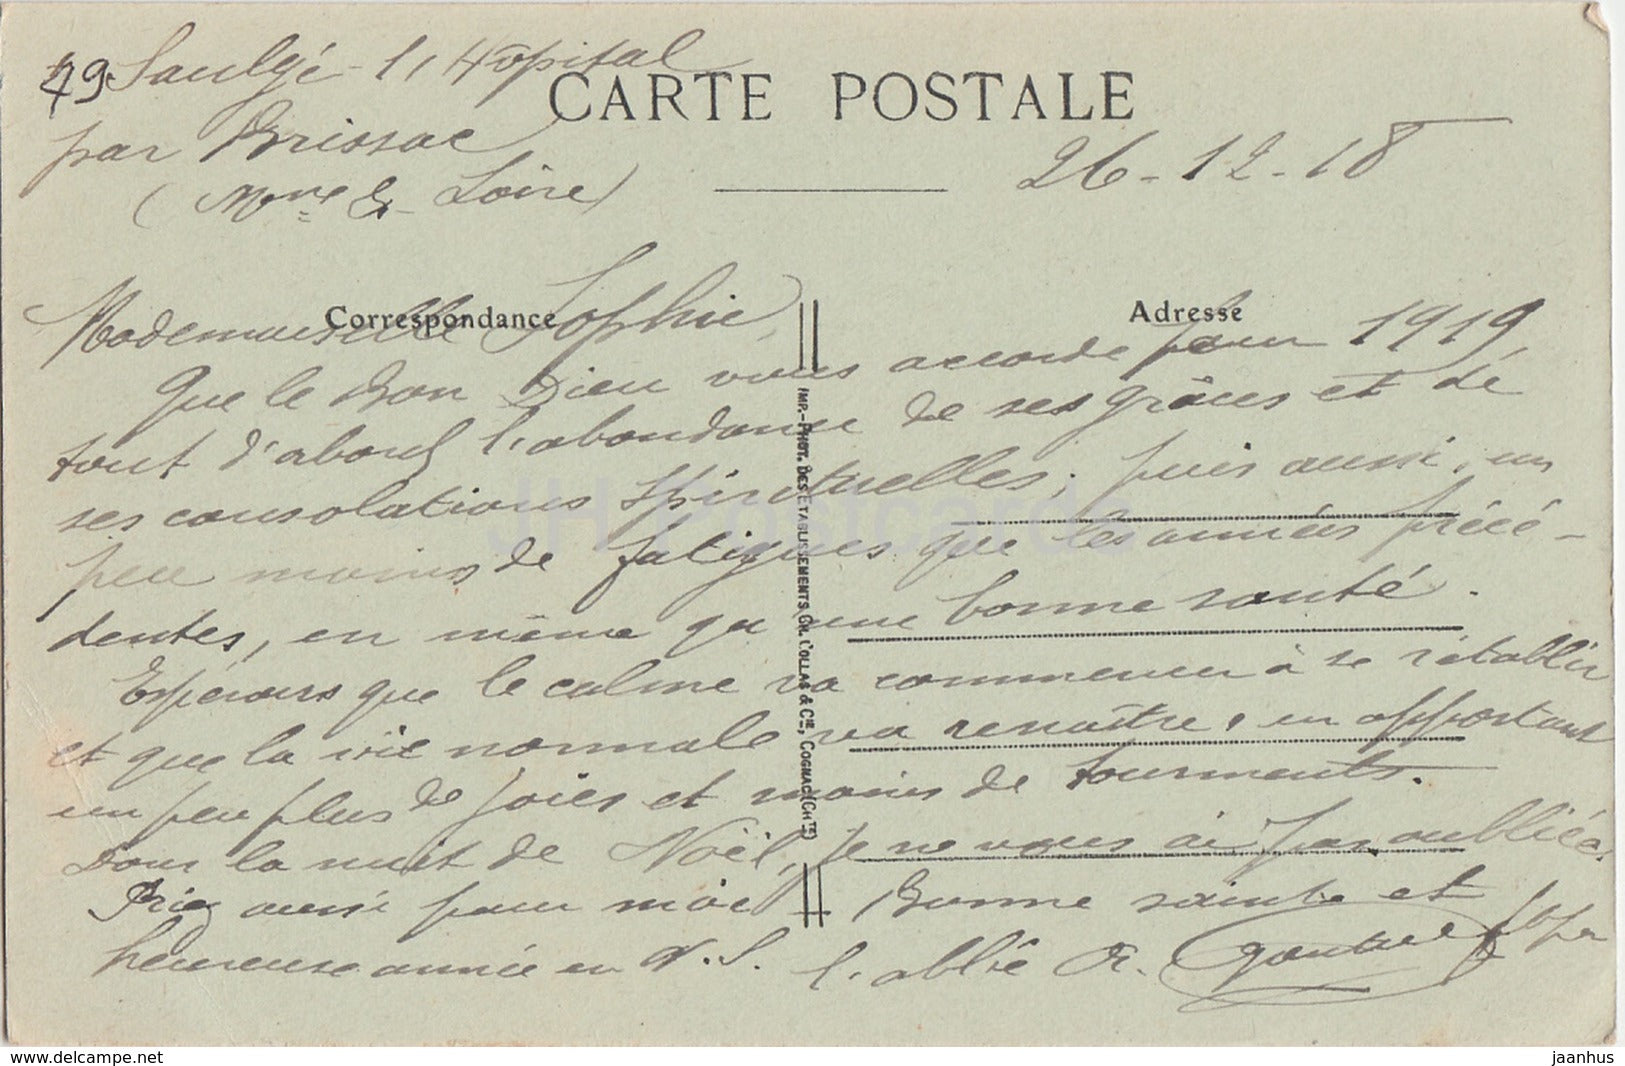 49 Saulgé-l'Hôpital
CARTE POSTALE
par Brissac
26-12-18
(Mne & Loire)
Correspondance
Adresse
Mademoiselle Sophie,
Que le Bon Dieu vous accorde pour 1919,
tout d'abord l'abondance de ses grâces et de
ses consolations spirituelles; puis aussi, un
peu moins de fatigues que les années précé-
dentes, en même qu'une bonne santé.
Espérons que le calme va commencer à se rétablir
et que la vie normale va renaître, en apportant
un peu plus de joies et moins de tourments.
Dans la nuit de Noël, je ne vous ai pas oubliée.
Priez aussi pour moi! - Bonne sainte et
heureuse année en N. S. l'abbé A.
IMP.-PHOT. DES ETABLISSEMENTS CH. COLLAS & CIE, COGNAC (CHTE)
JH Postcards
www.delcampe.net
jaanhus